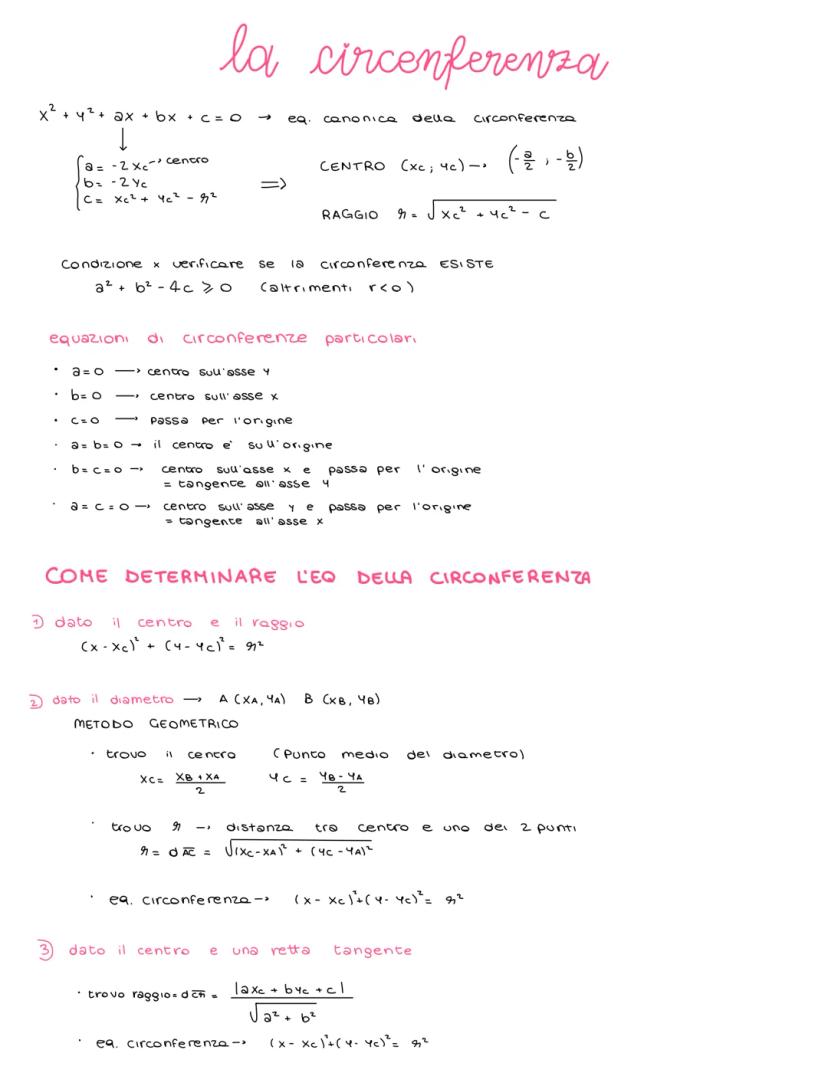 la circenferenza
x² + y² + ax + bx + c = 0 → eq. canonica della circonferenza
a = -2xc → centro
b = -2yc
c = xc² + yc² - r²
⇒
CENTRO (xc; yc) → (-a/2, -b/2)
RAGGIO r = √(xc² + yc² - c)
Condizione x verificare se la circonferenza ESISTE
a² + b² - 4c ⩾ 0 (altrimenti r<0)
equazioni di circonferenze particolari
• a=0 → centro sull'asse y
• b=0 → centro sull'asse x
• c=0 → passa per l'origine
• a=b=0 → il centro e' sull'origine
• b=c=0 → centro sull'asse x e passa per l'origine
= tangente all'asse y
• a=c=0 → centro sull'asse y e passa per l'origine
= tangente all'asse x
COME DETERMINARE L'EQ DELLA CIRCONFERENZA
1) dato il centro e il raggio
(x - xc)² + (y - yc)² = r²
2) dato il diametro → A (xA, yA) B (xB, yB)
METODO GEOMETRICO
• trovo il centro (Punto medio del diametro)
xc = (xB + xA)/2 yc = (yB - yA)/2
• trovo r → distanza tra centro e uno dei 2 punti
r = d AC = √((xc - xA)² + (yc - yA)²)
• eq. circonferenza → (x - xc)² + (y - yc)² = r²
3) dato il centro e una retta tangente
• trovo raggio = d CH = |axc + byc + c| / √(a² + b²)
• eq. circonferenza → (x - xc)² + (y - yc)² = r²